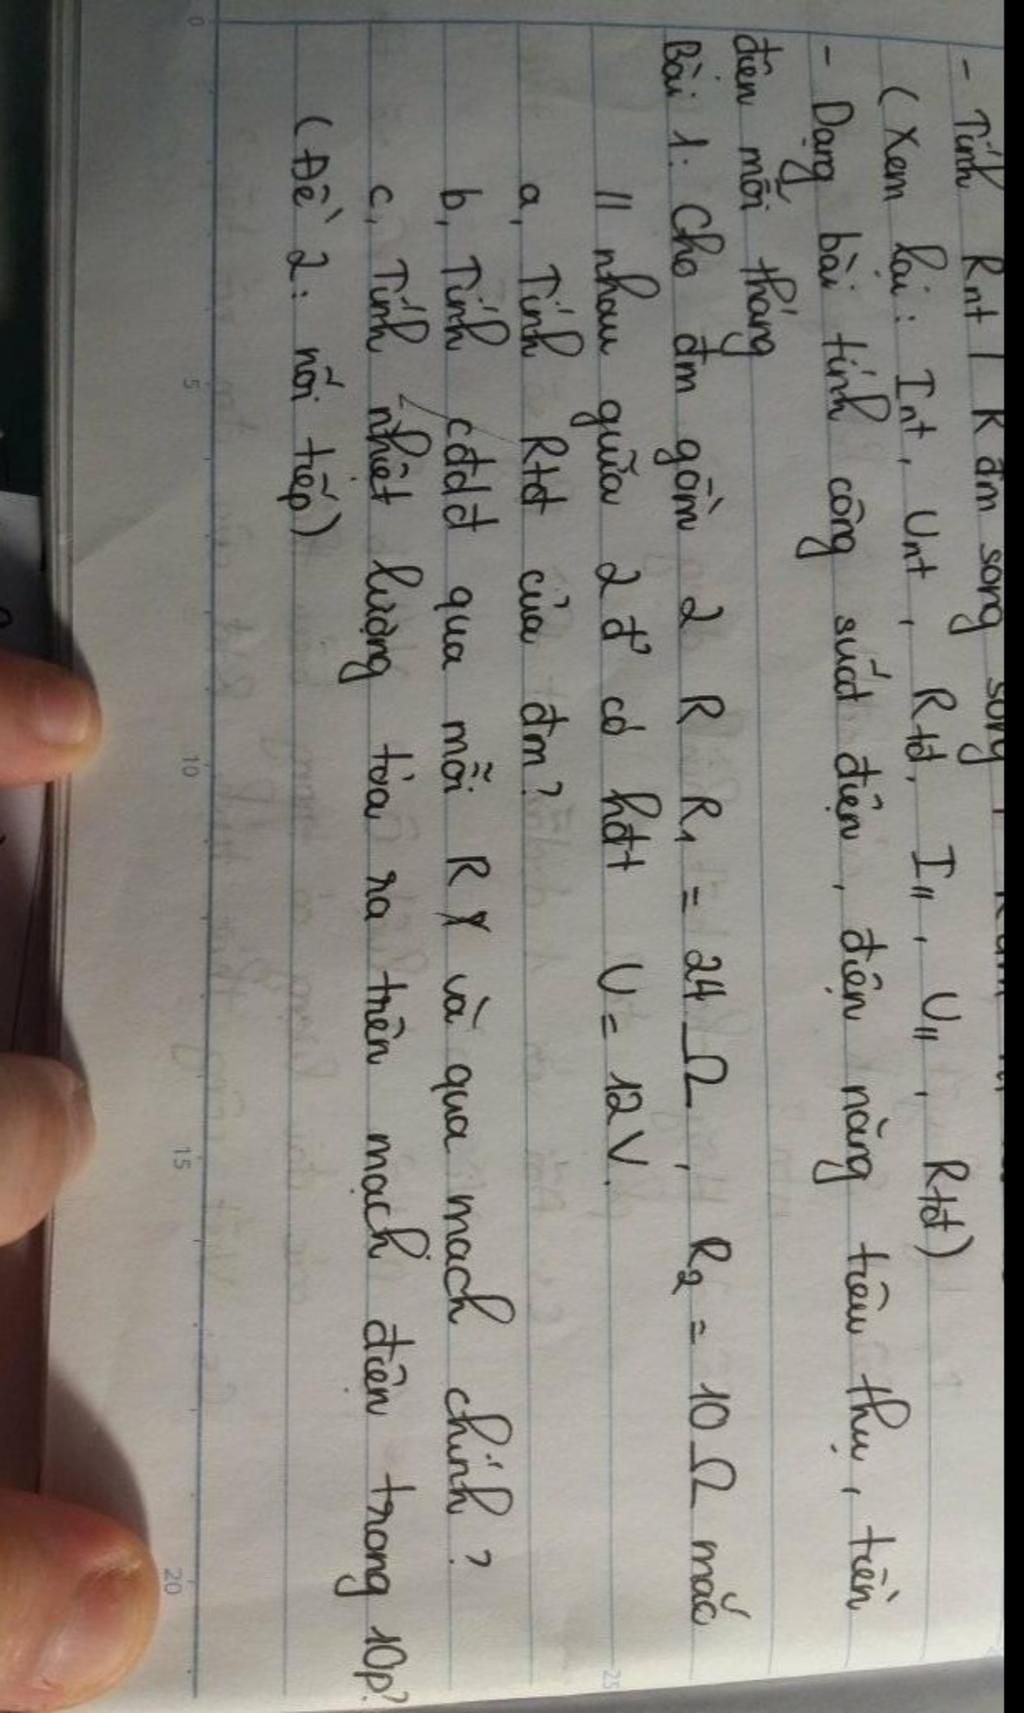 - Tính Rnt / R đm song song
(Xem lại: Int, Unt, Rtđ, I//, U//, Rtđ)
- Dạng bài tính công suất điện, điện năng tiêu thụ, tiền
điện mỗi tháng
Bài 1: Cho đm gồm 2 R R1 = 24 Ω, R2 = 10 Ω mắc
// nhau giữa 2 đ' có hđt U = 12V.
a, Tính Rtđ của đm?
b, Tính cđdđ qua mỗi R và qua mạch chính?
c, Tính nhiệt lượng tỏa ra trên mạch điện trong 10p?
(Đề 2: nối tiếp)
0 5 10 15 20
25